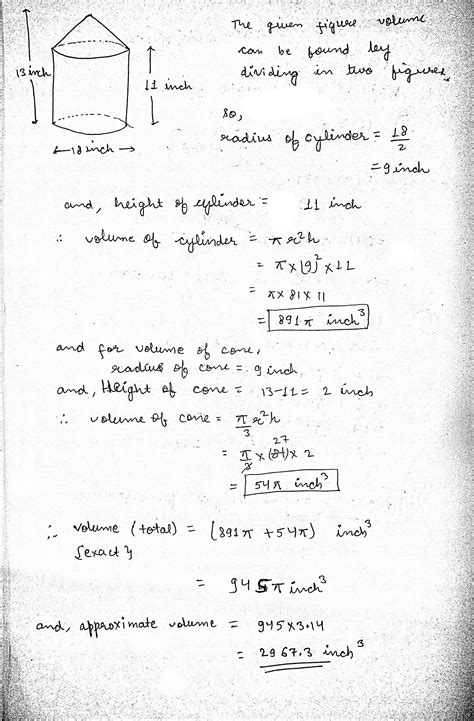 The given figure volume
can be found by
dividing in two figures.
13 inch
11 inch
18 inch
So,
radius of cylinder = 18/2
= 9 inch
and, height of cylinder = 11 inch
∴ volume of cylinder = πr²h
= π×(9)²×11
= π×81×11
= 891π inch³
and for volume of cone,
radius of cone = 9 inch
and, Height of cone = 13-11 = 2 inch
∴ volume of cone = π/3 r²h
27
= π/3 × (81) × 2
= 54π inch³
∴ volume (total) = (891π + 54π) inch³
{exact}
= 945π inch³
and, approximate volume = 945×3.14
= 2967.3 inch³